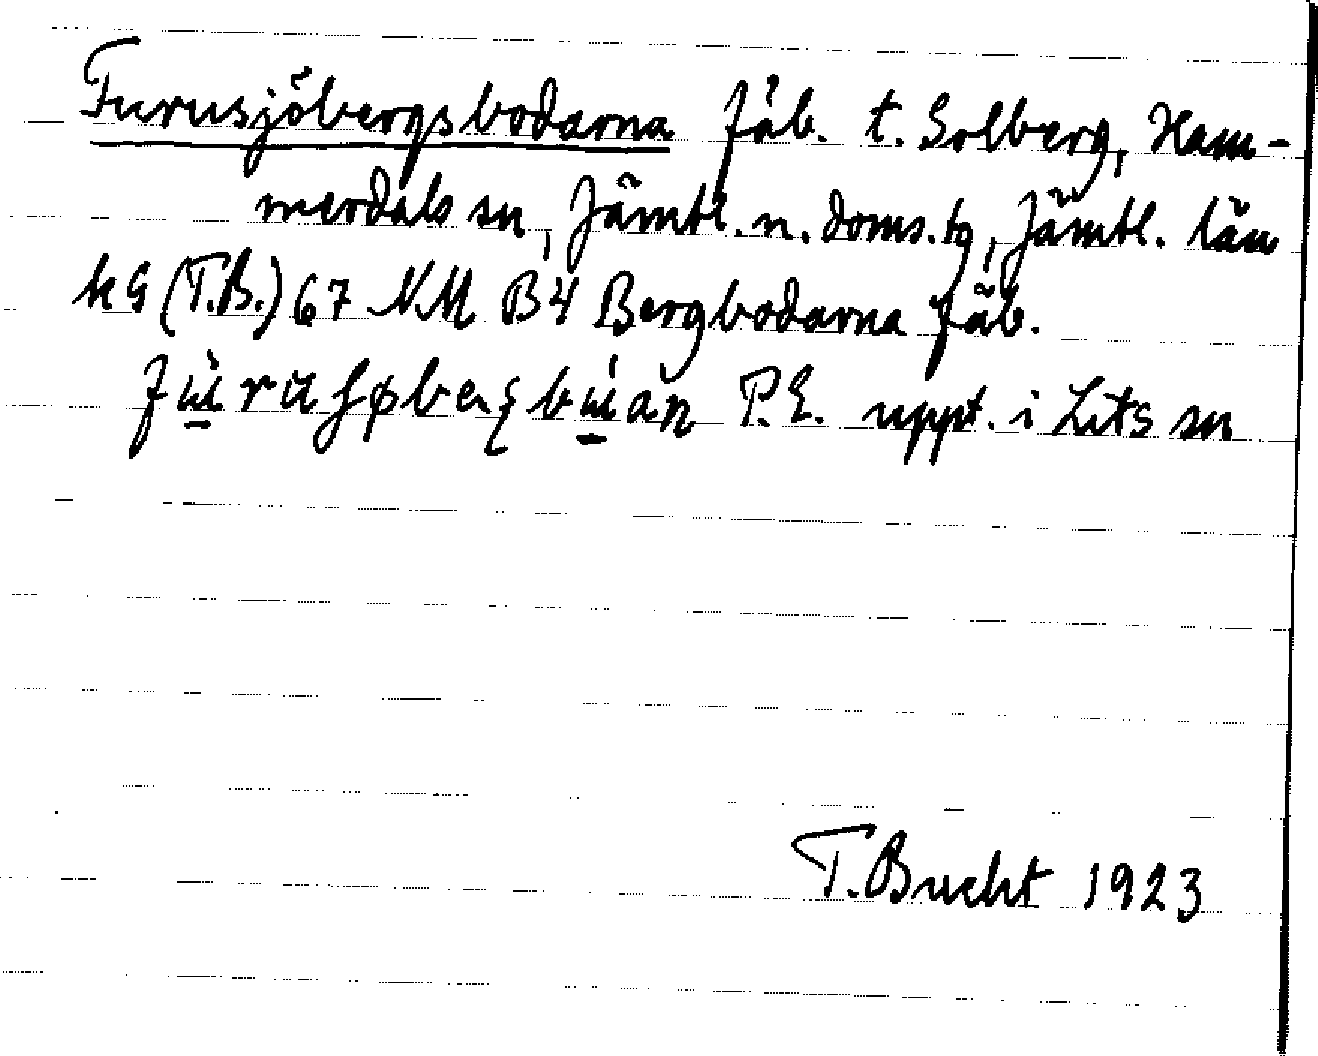 Furusjöbergsbodarna fäb. t. Solberg, Ham-
merdals sn, Jämtl. n. doms. tg, Jämtl. län
KG (T.B.) 67 NM B4 Bergbodarna fäb.
P.E. uppt. i Lits sn
T. Bucht 1923